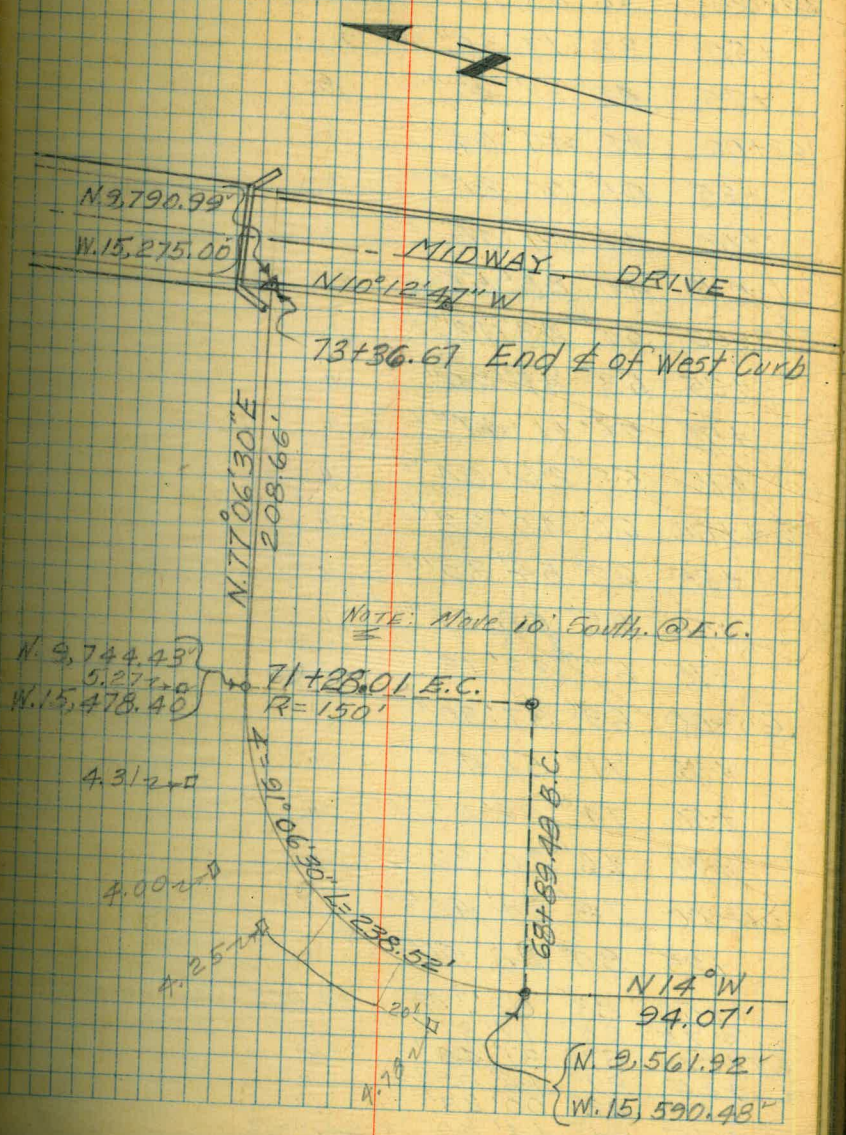 N
N. 9,790.99'
W. 15,275.00
MIDWAY DRIVE
N 10° 12' 47" W
73+36.67 End ₵ of West Curb
N. 77° 06' 30" E
208.66'
NOTE: Move 10' South. @ E.C.
N. 9,744.43'
5.27
W. 15,478.40
71+28.01 E.C.
R=150'
4.31
4.00
4.25
91° 06' 30" L=238.52'
68+89.49 B.C.
20'
4.78
N 14° W
94.07'
N. 9,561.92'
W. 15,590.48'